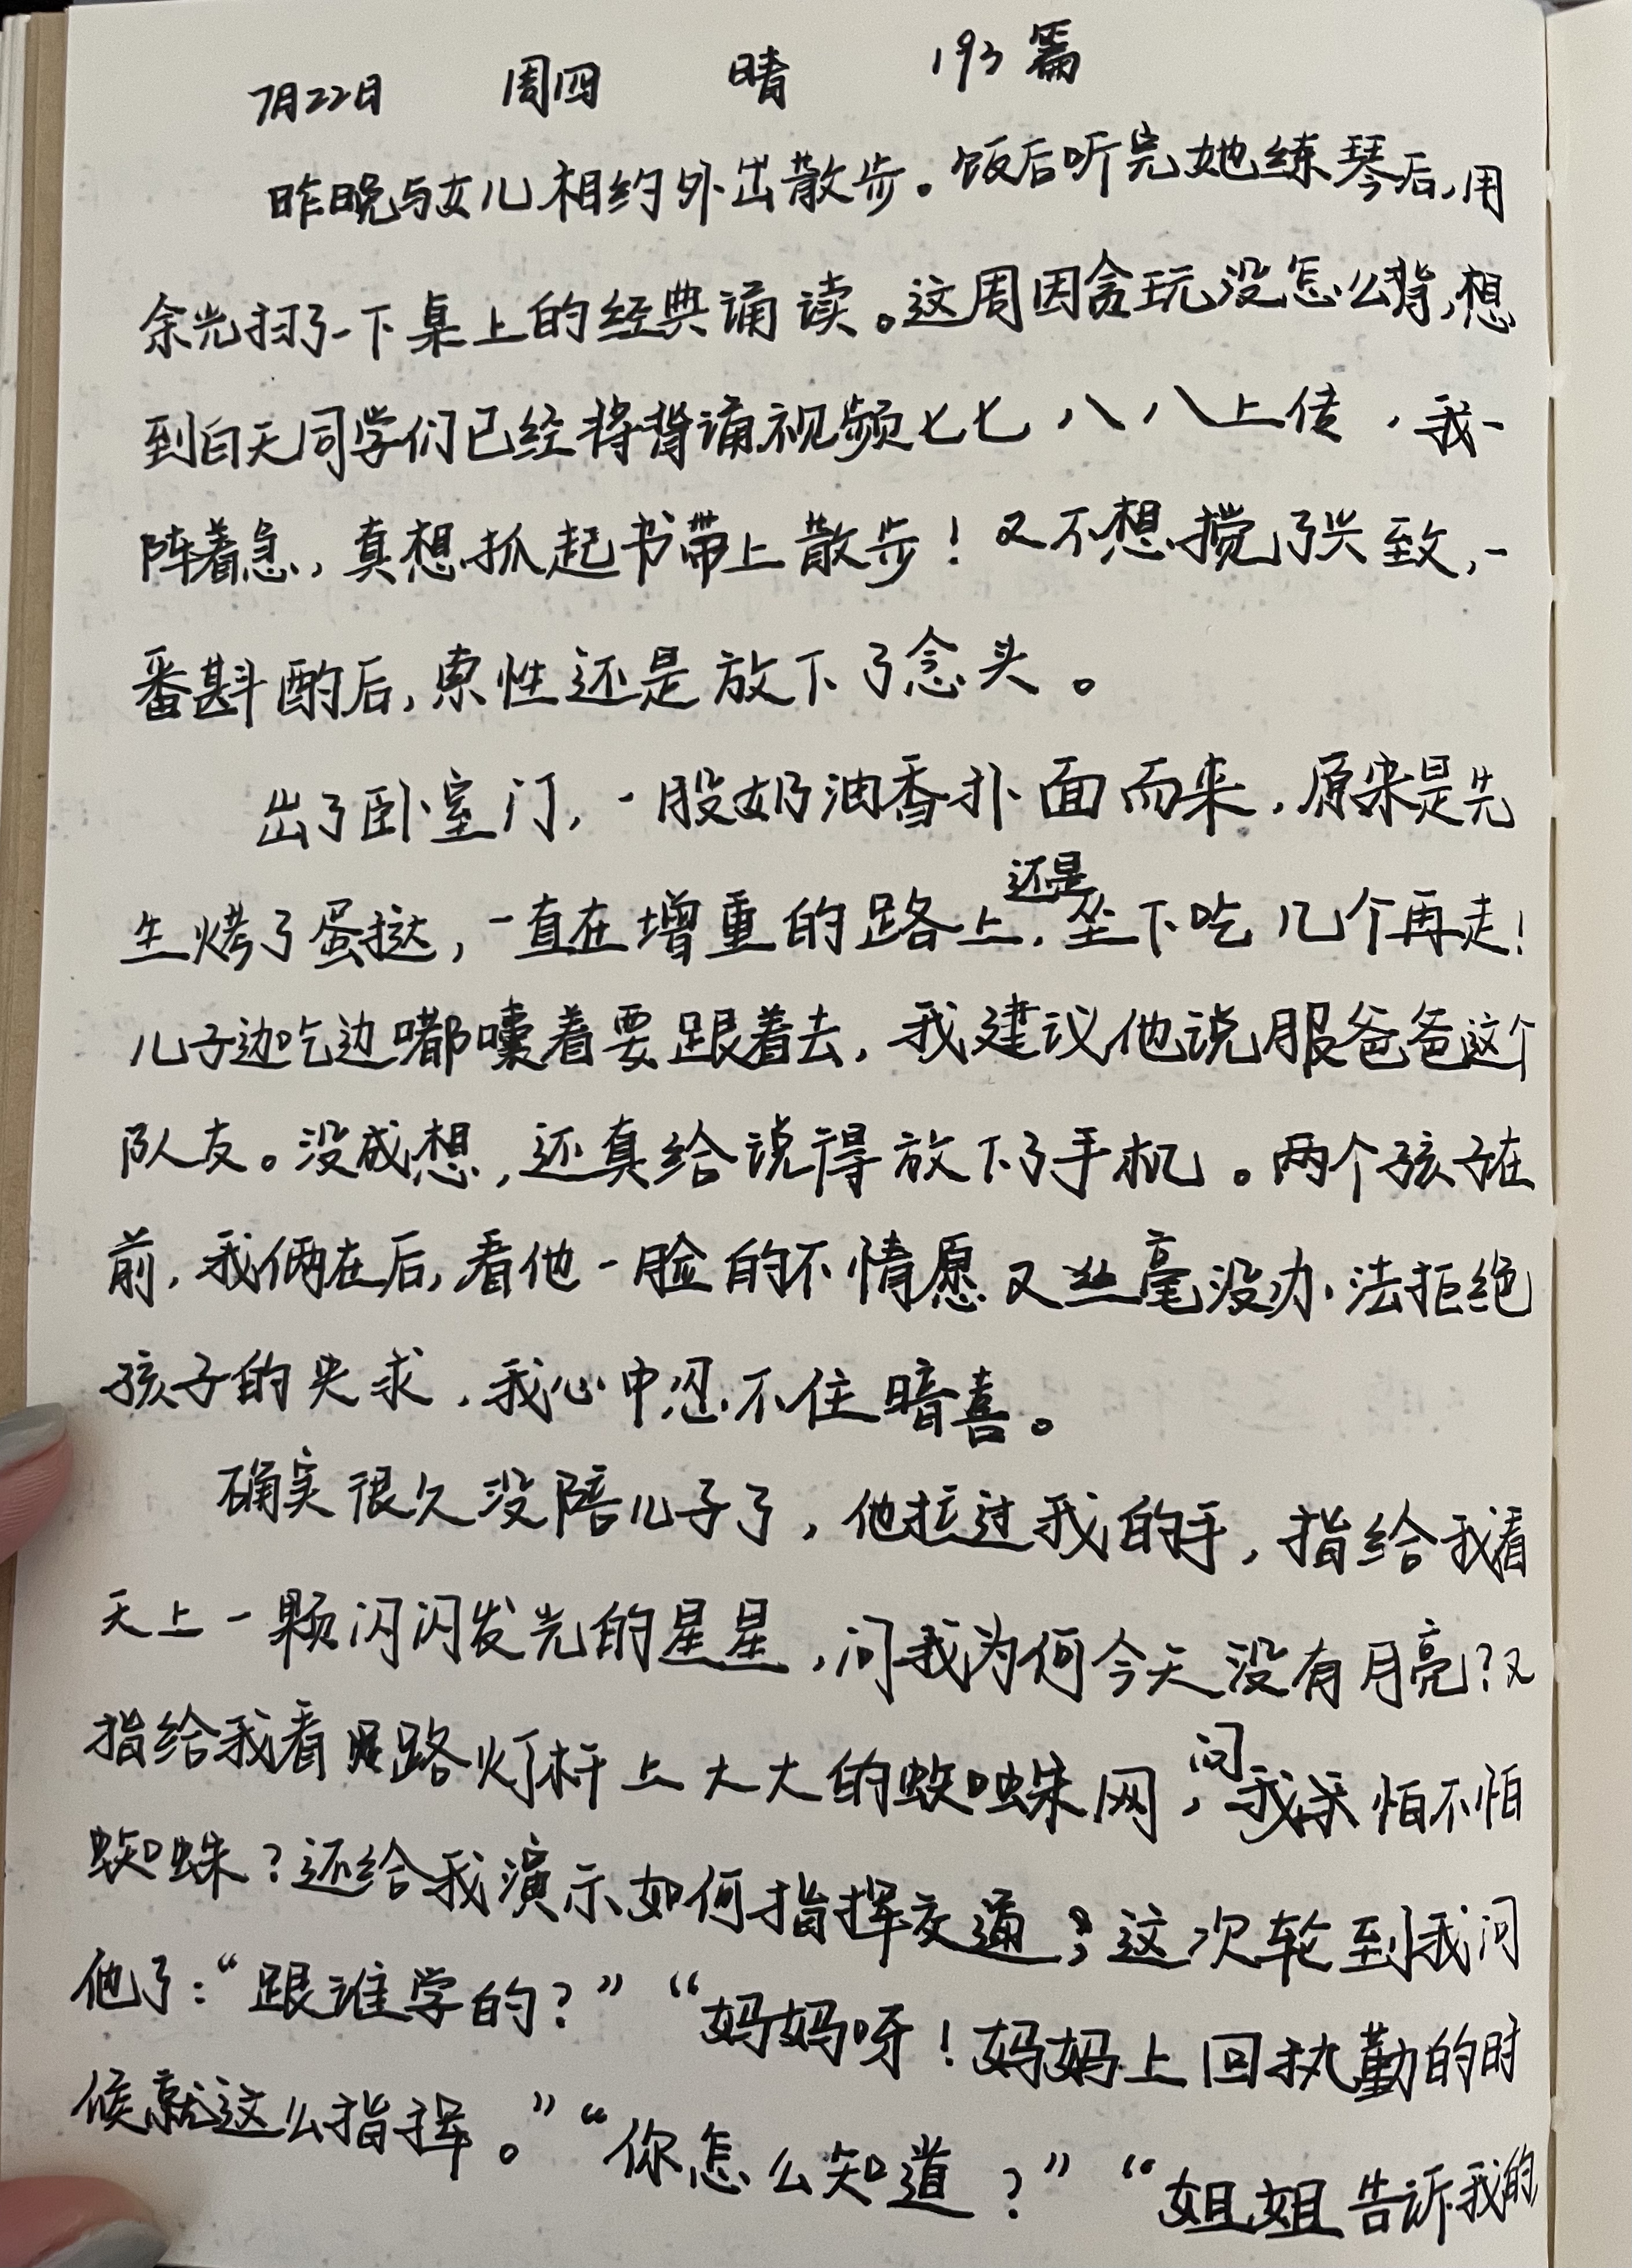 7月22日 周四 晴 193篇
昨晚与女儿相约外出散步。饭后听完她练琴后,用
余光扫了一下桌上的经典诵读。这周因贪玩没怎么背,想
到白天同学们已经将背诵视频七七八八上传,我一
阵着急,真想抓起书带上散步!又不想搅了兴致,一
番斟酌后,索性还是放下了念头。
出了卧室门,一股奶油香扑面而来,原来是先
生烤了蛋挞,一直在增重的路上,还是坐下吃几个再走!
儿子边吃边嘟囔着要跟着去,我建议他说服爸爸这个
队友。没成想,还真给说得放下了手机。两个孩子在
前,我俩在后,看他一脸的不情愿又丝毫没办法拒绝
孩子的央求,我心中忍不住暗喜。
确实很久没陪儿子了,他拉过我的手,指给我看
天上一颗闪闪发光的星星,问我为何今天没有月亮?又
指给我看路灯杆上大大的蜘蛛网,问我怕不怕
蜘蛛?还给我演示如何指挥交通,这次轮到我问
他了:“跟谁学的?”“妈妈呀!妈妈上回执勤的时
候就这么指挥。”“你怎么知道?”“姐姐告诉我的